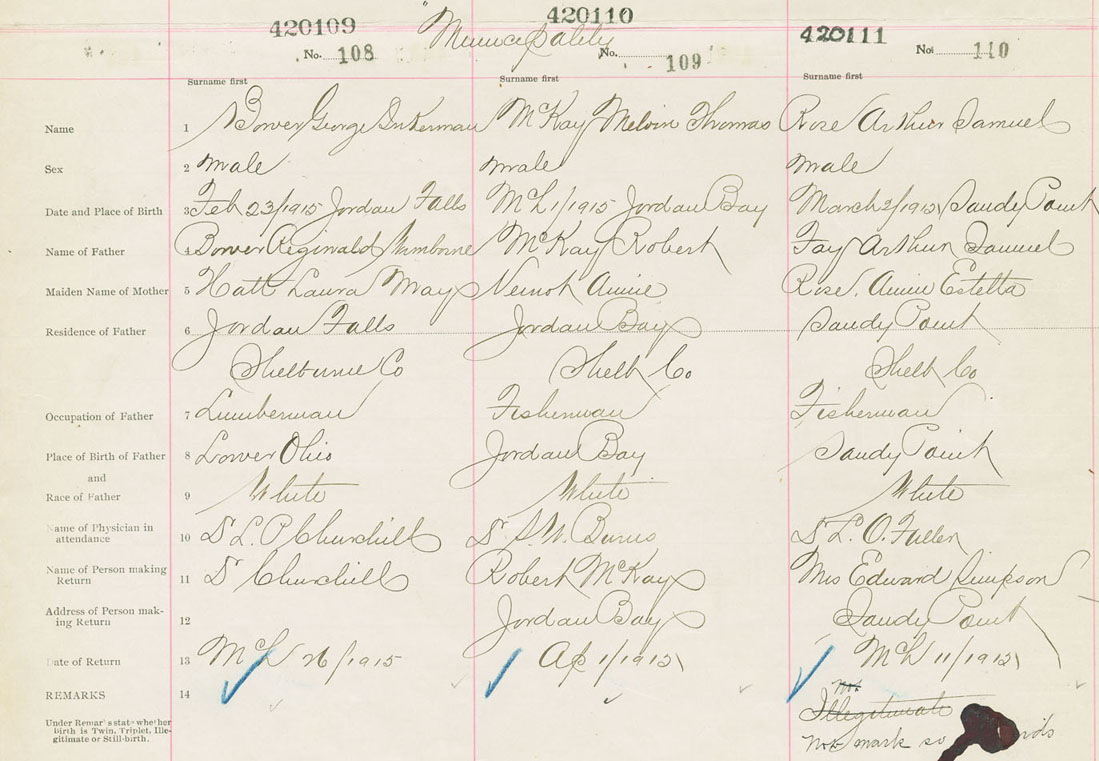 420109 "Municipality 420110 420111
No. 108 No. 109 No. 110
Surname first Surname first Surname first
Name 1 Bower George Inkerman McKay Melvin Thomas Rose Arthur Samuel
Sex 2 male male male
Date and Place of Birth 3 Feb 23/1915 Jordan Falls Mch 1/1915 Jordan Bay March 2/1915 Sandy Point
Name of Father 4 Bower Reginald McKay Robert Fay Arthur Samuel
Maiden Name of Mother 5 Hatt Laura May Annie Rose. Annie Estella
Residence of Father 6 Jordan Falls Jordan Bay Sandy Point
Shelburne Co Shelb Co Shelb Co
Occupation of Father 7 Lumberman Fisherman Fisherman
Place of Birth of Father 8 Lower Ohio Jordan Bay Sandy Point
and
Race of Father 9 White White White
Name of Physician in
attendance 10 Dr L. P. Churchill Dr S. W. Burns Dr L. O. Fuller
Name of Person making
Return 11 Dr Churchill Robert McKay Mrs Edward Simpson
Address of Person mak-
ing Return 12 Jordan Bay Sandy Point
Date of Return 13 Mch 26/1915 Ap 1/1915 Mch 11/1915
REMARKS 14 Not
Illegitimate
Under Remar's stat- whether
Birth is Twin, Triplet, Ille-
gitimate or Still-birth.
not mark so